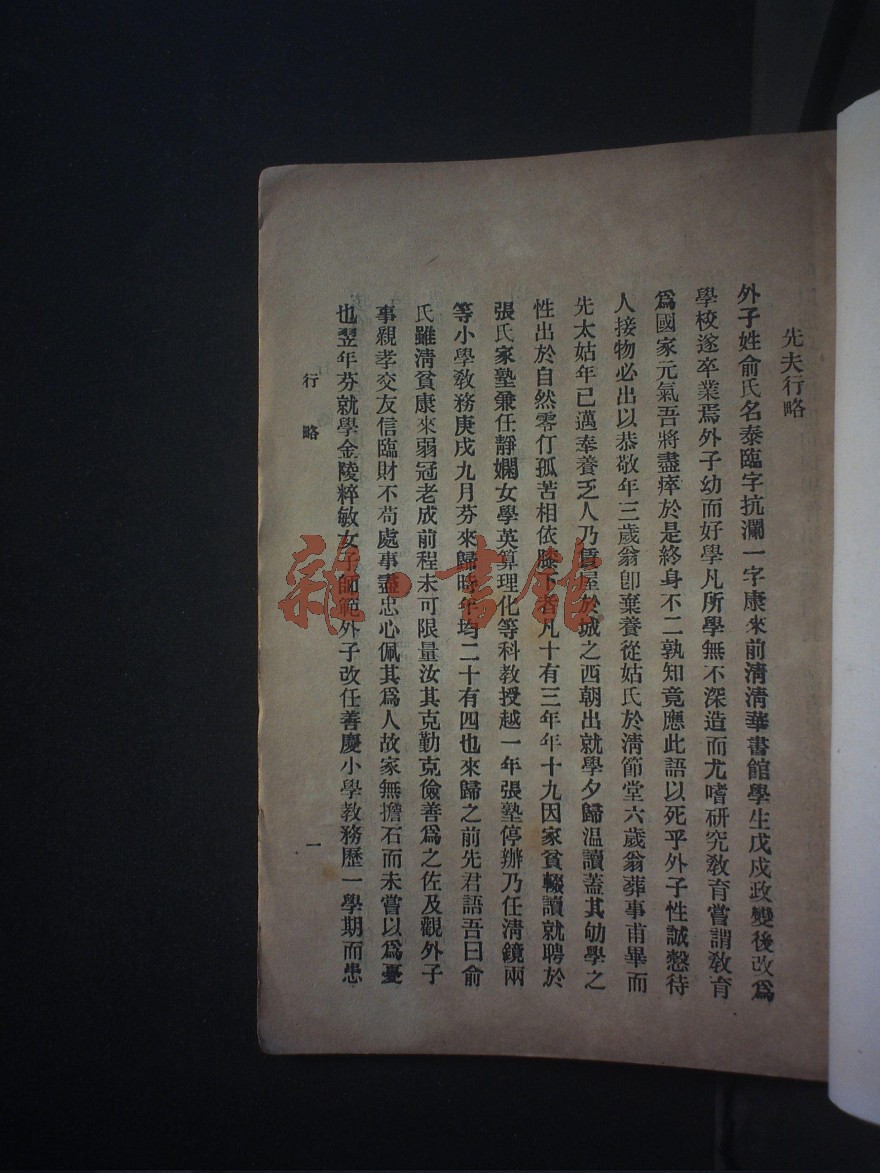 先夫行略
外子姓俞氏名泰臨字抗瀾一字康來前清清華書館學生戊戌政變後改爲
學校遂卒業焉外子幼而好學凡所學無不深造而尤嗜硏究敎育嘗謂敎育
爲國家元氣吾將盡瘁於是終身不二孰知竟應此語以死乎外子性誠慤待
人接物必出以恭敬年三歲翁卽棄養從姑氏於淸節堂六歲翁葬事甫畢而
先太姑年已邁奉養乏人乃賃屋於城之西朝出就學夕歸温讀蓋其劬學之
性出於自然零仃孤苦相依膝下者凡十有三年年十九因家貧輟讀就聘於
張氏家塾兼任靜嫻女學英算理化等科教授越一年張塾停辦乃任淸鏡兩
等小學敎務庚戌九月芬來歸時年均二十有四也來歸之前先君語吾曰俞
氏雖淸貧康來弱冠老成前程未可限量汝其克勤克儉善爲之佐及觀外子
事親孝交友信臨財不苟處事盡忠心佩其爲人故家無擔石而未嘗以爲憂
也翌年芬就學金陵粹敏女子師範外子改任善慶小學敎務歷一學期而患
行略
一
雜·書館